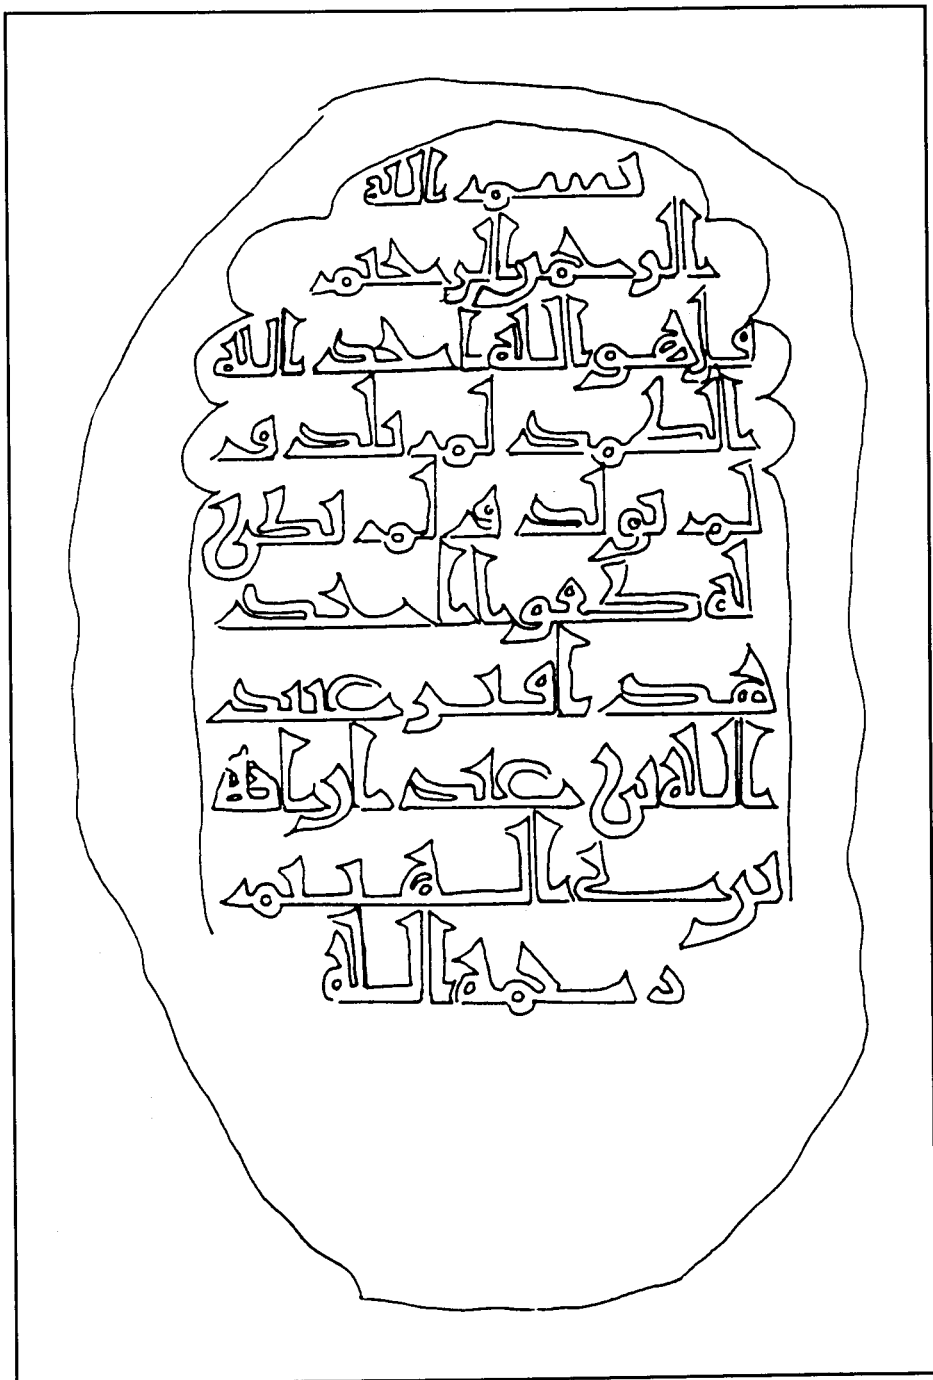 بسم الله
الرحمن الرحيم
قل هو الله احد الله
الصمد لم يلد و
لم يولد و لم يكن
له كفوا احد
هذا قبر عبد
الله بن عبد
رحمه الله